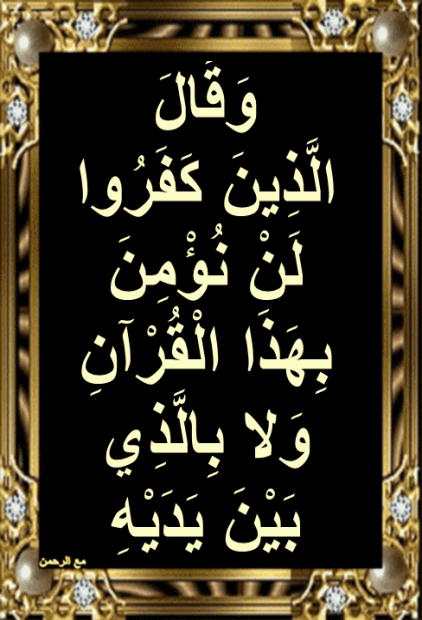 وَقَالَ
الَّذِينَ كَفَرُوا
لَنْ نُؤْمِنَ
بِهَذَا الْقُرْآنِ
وَلا بِالَّذِي
بَيْنَ يَدَيْهِ
مع الرحمن